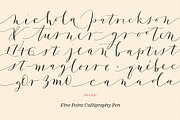 nichola patrickson
& turner grooten
1146 st. jean baptist
st-magloire · québec
g0r 3m0 canada
Fine Point Calligraphy Pen